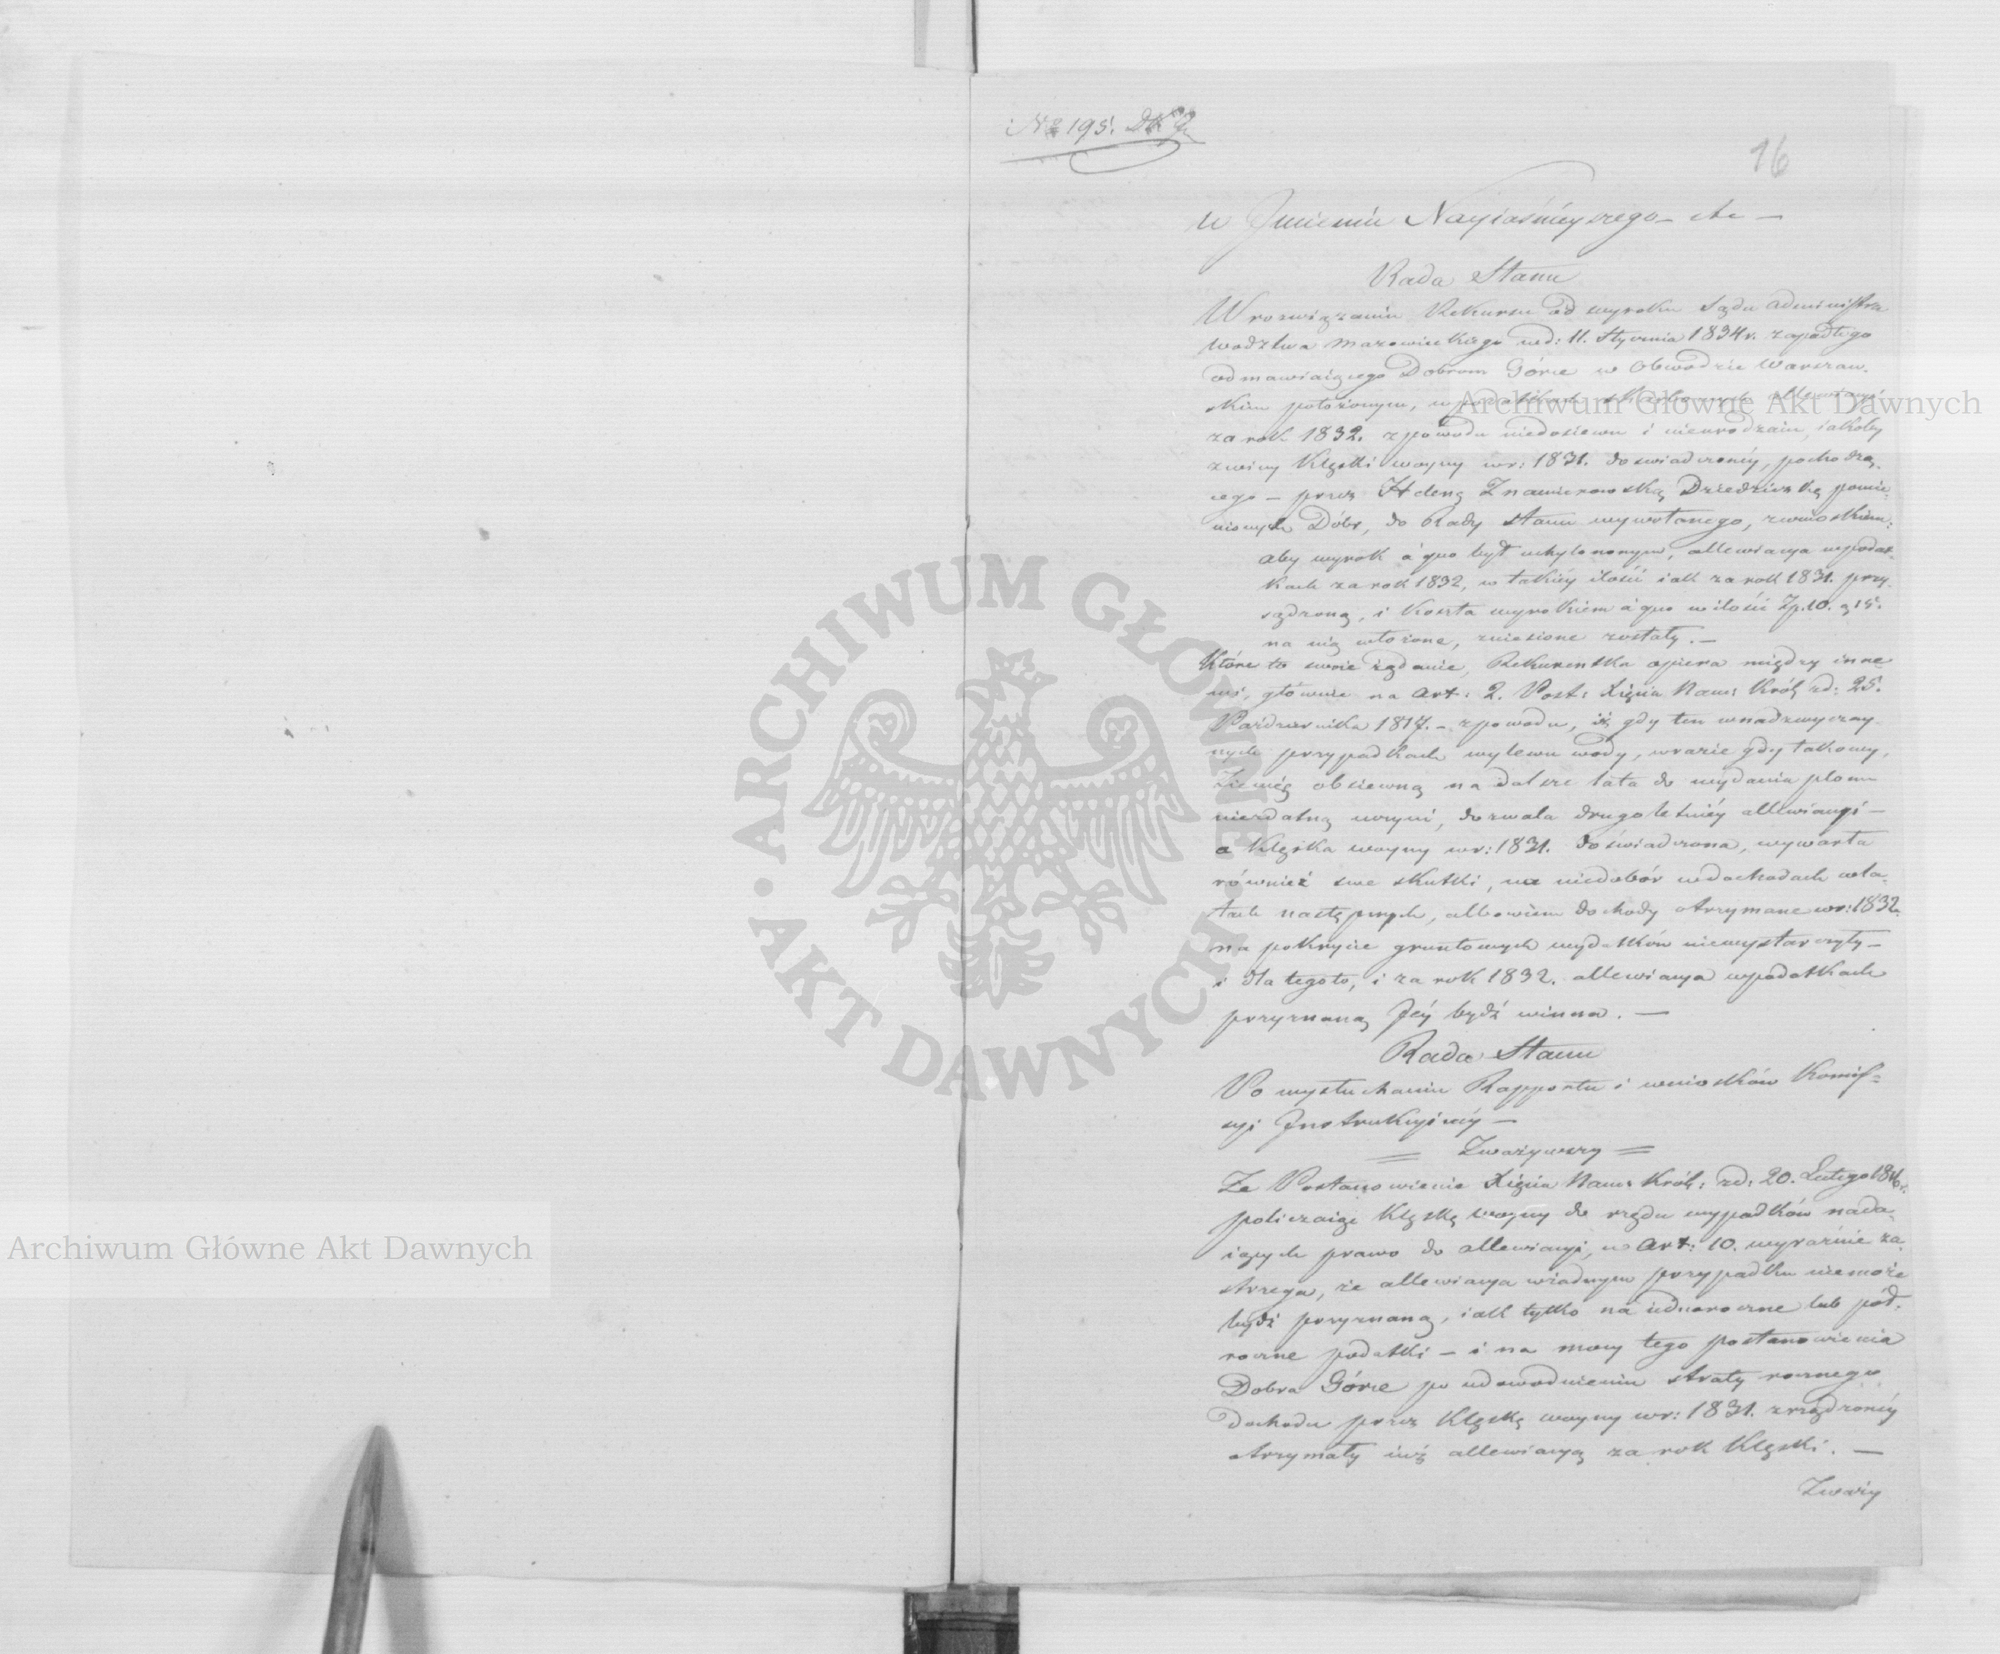 № 195.
16
w Jmieniu Nayiaśnieyszego – etc –
Rada Stanu
W rozwiązaniu Rekursu od wyroku Sądu Administra
Wodztwa Mazowieckiego w d: 11. Stycznia 1834 r. zapadłego
odmawiaiącego Dobrom Górce w Obwodzie Warszaw.
skim położonym, w podatkach skarbowych allewiacyi
za rok 1832. z powodu niedosiewu i nieurodzaiu, iakoby
z winy Klęski woyny w r: 1831. doświadczonéy, pochodzą,
cego – przez Helenę Znamierowską Dziedziczkę pomie,
nionych Dóbr, do Rady Stanu wywołanego, z wnioskiem:
aby wyrok à quo był uchylonym, allewiacya w podat,
kach za rok 1832, w takiéy ilości iak za rok 1831. przy,
sądzoną, i koszta wyrokiem à quo w ilości Zp. 10. g 15.
na nią włożone, zniesione zostały. –
Które to swoie żądanie, Rekurentka opiera między inne
mi, głównie na Art: 2. Post: Xięcia Nam: Król: z d: 25.
Października 1817. – z powodu, iż gdy ten w nadzwyczay,
nych przypadkach wylewu wody, w razie gdy takowy,
Ziemię obsiewną na dalsze lata do wydania plonu
niezdatną uczyni, dozwala drugoletniéy allewiacyi –
a Klęska woyny w r: 1831. doświadczona, wywarła
również swe skutki, na niedobór w dochodach w la,
tach następnych, albowiem dochody otrzymane w r: 1832.
na pokrycie gruntowych wydatków niewystarczyły –
i dla tego to, i za rok 1832. allewiacya w podatkach
przyznaną Jéy bydź winna. –
Rada Stanu
Po wysłuchaniu Rapportu i wniosków Komis=
syi Jnstrukcyinéy –
= Zważywszy =
Że Postanowienie Xięcia Nam: Król: z d: 20. Lutego 1816 r.
policzaiąc Klęskę woyny do rzędu wypadków nada,
iących prawo do allewiacyi, w Art: 10. wyraźnie za,
strzega, że allewiacya w żadnym przypadku nie może
bydź przyznaną, iak tylko na iednoroczne lub pół,
roczne podatki – i na mocy tego postanowienia
Dobra Górce po udowodnieniu straty rocznego
dochodu przez Klęskę woyny w r: 1831. zrządzonéy
otrzymały iuż allewiacyą za rok Klęski. –
Zważy
Archiwum Główne Akt Dawnych
Archiwum Główne Akt Dawnych
ARCHIWUM GŁÓWNE · AKT DAWNYCH ·